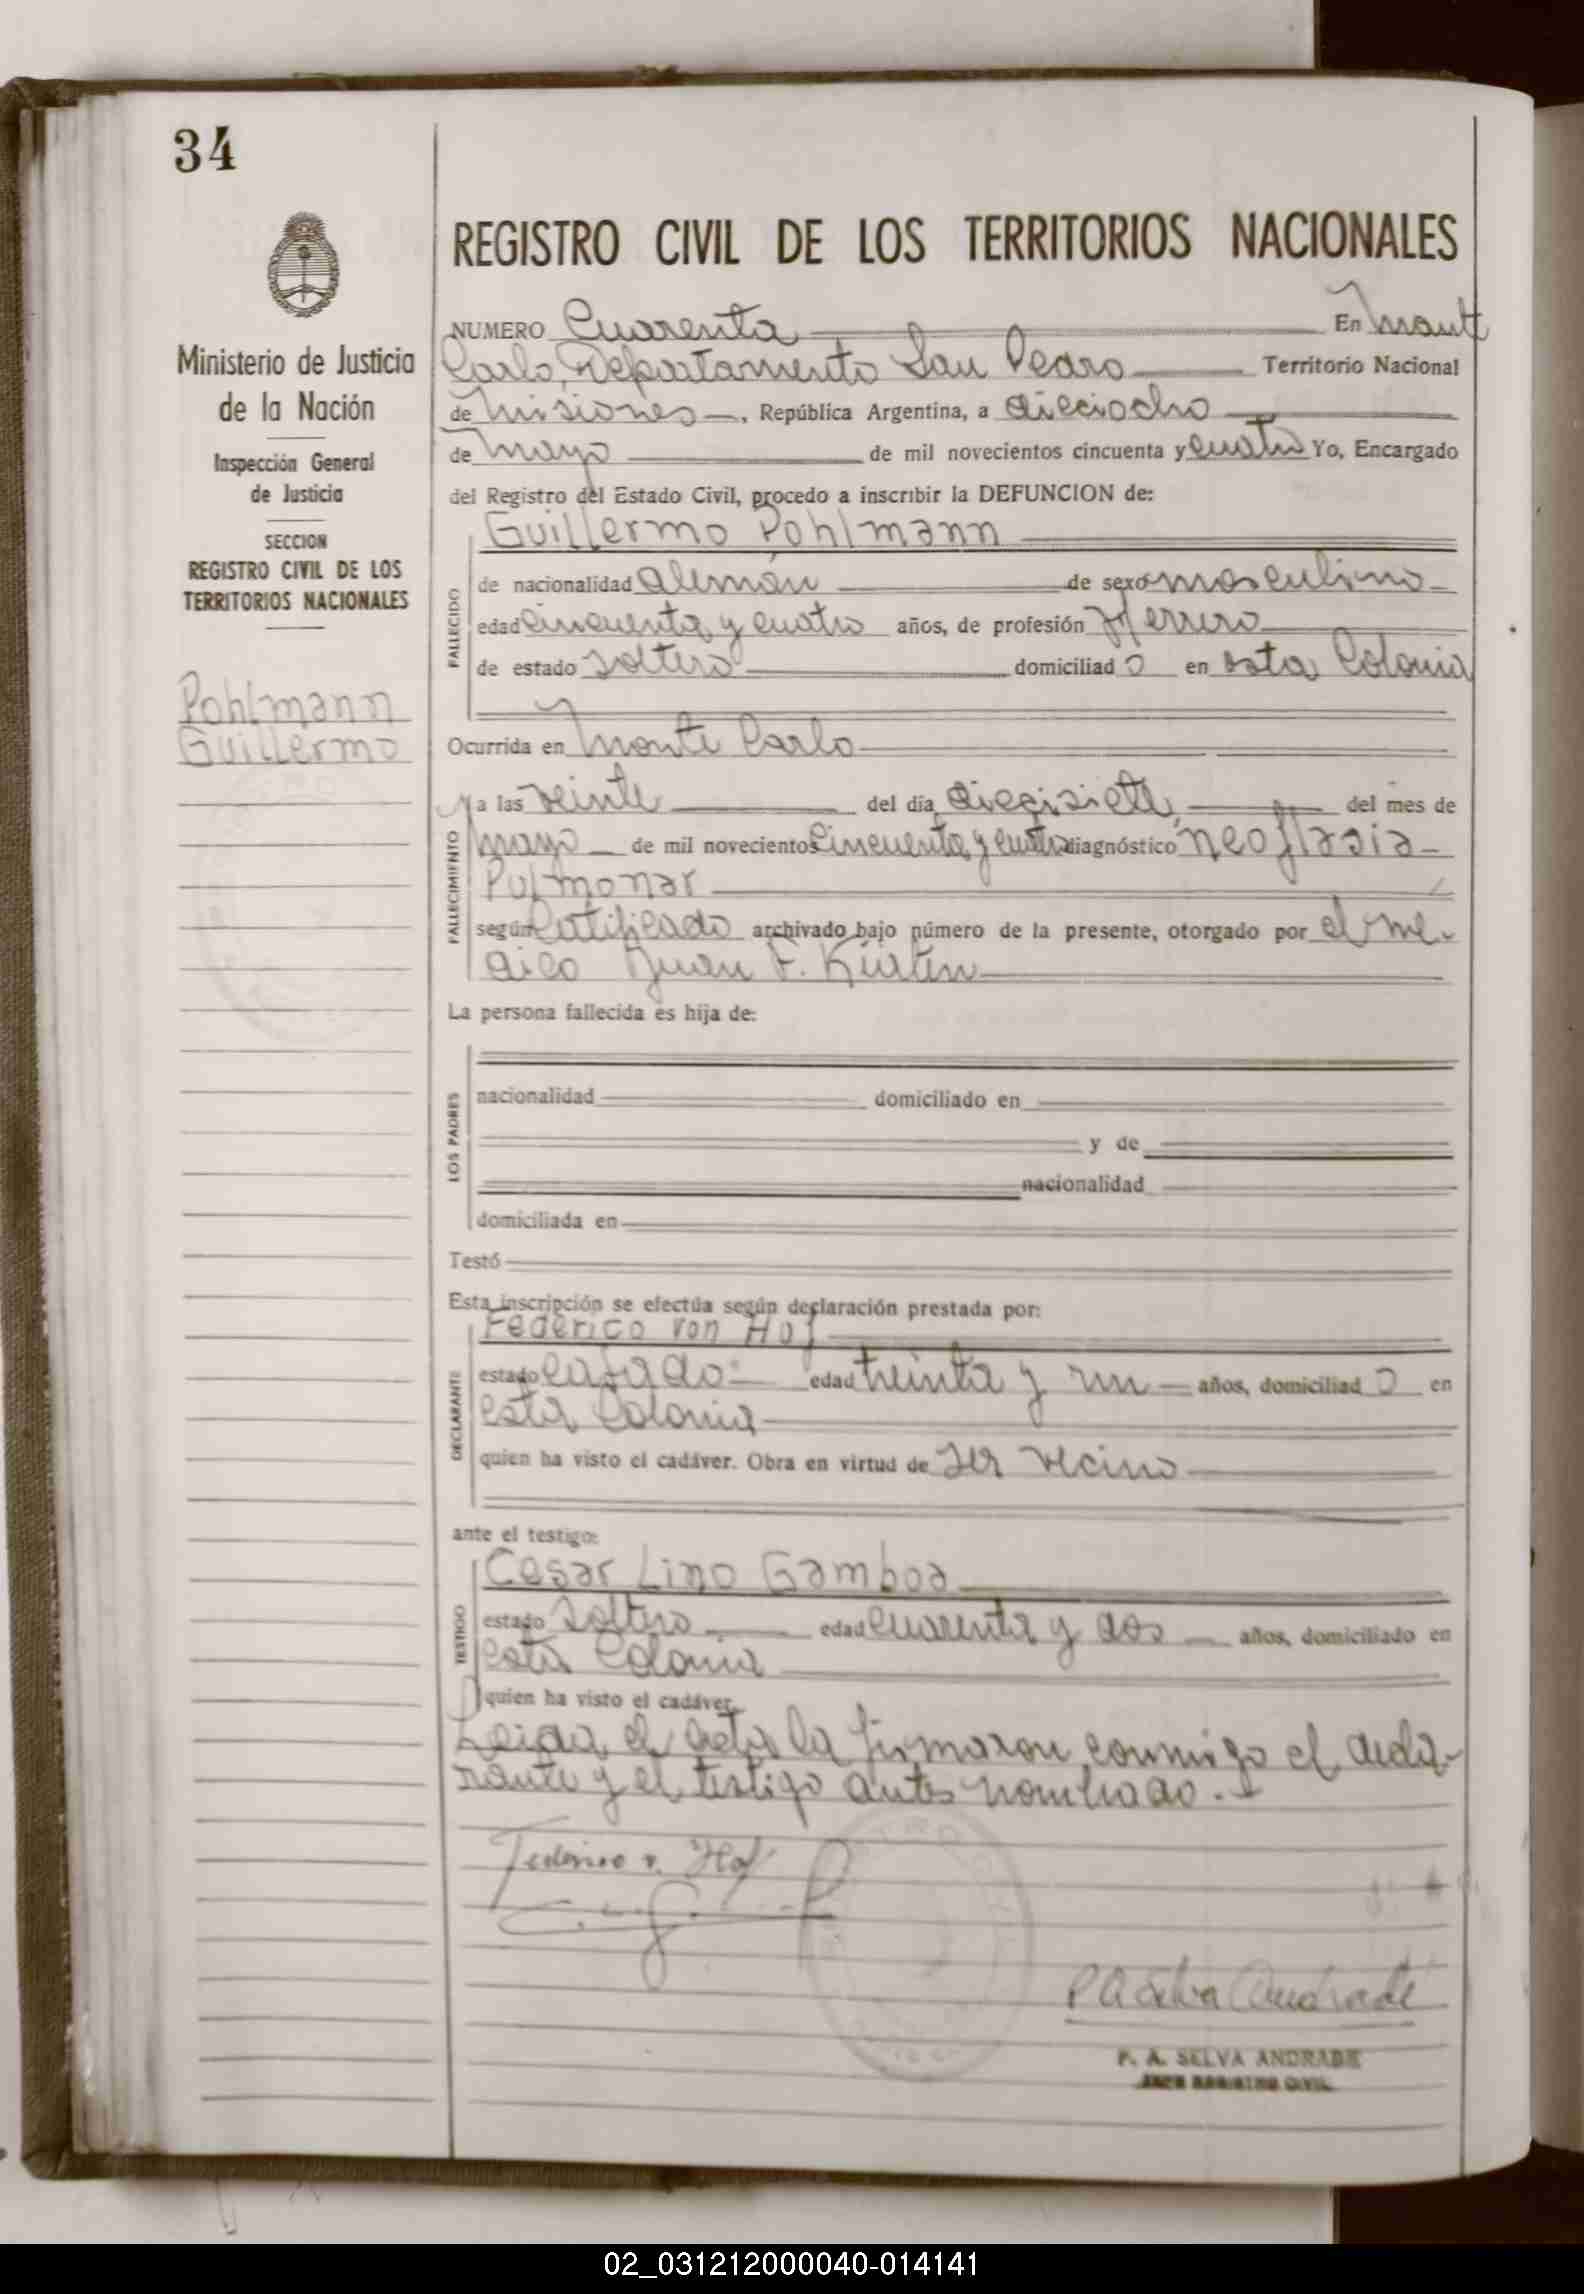 34
REGISTRO CIVIL DE LOS TERRITORIOS NACIONALES
Ministerio de Justicia
de la Nación
Inspección General
de Justicia
SECCION
REGISTRO CIVIL DE LOS
TERRITORIOS NACIONALES
Pohlmann
Guillermo
NUMERO Cuarenta En Monte
Carlo, Departamento San Pedro Territorio Nacional
de Misiones, República Argentina, a dieciocho
de mayo de mil novecientos cincuenta y cuatro Yo, Encargado
del Registro del Estado Civil, procedo a inscribir la DEFUNCION de:
Guillermo Pohlmann
FALLECIDO
de nacionalidad alemán de sexo masculino
edad cincuenta y cuatro años, de profesión Herrero
de estado soltero domiciliado en esta Colonia
Ocurrida en Monte Carlo
FALLECIMIENTO
a las veinte del día diecisiete, del mes de
mayo de mil novecientos cincuenta y cuatro diagnóstico neoplasia
Pulmonar
según Certificado archivado bajo número de la presente, otorgado por el me-
dico Juan F. Kürten
La persona fallecida es hija de:
LOS PADRES
nacionalidad domiciliado en
y de
nacionalidad
domiciliada en
Testó
Esta inscripción se efectúa según declaración prestada por:
Federico von Hof
DECLARANTE
estado casado edad treinta y un años, domiciliado en
esta Colonia
quien ha visto el cadáver. Obra en virtud de ser vecino
ante el testigo:
Cesar Lino Gamboa
TESTIGO
estado soltero edad cuarenta y dos años, domiciliado en
esta Colonia
quien ha visto el cadáver.
Leida el acta la firmaron conmigo el decla-
rante y el testigo antes nombrado.
Federico v. Hof
P A Selva Andrade
P. A. SELVA ANDRADE
JEFE REGISTRO CIVIL
02_031212000040-014141